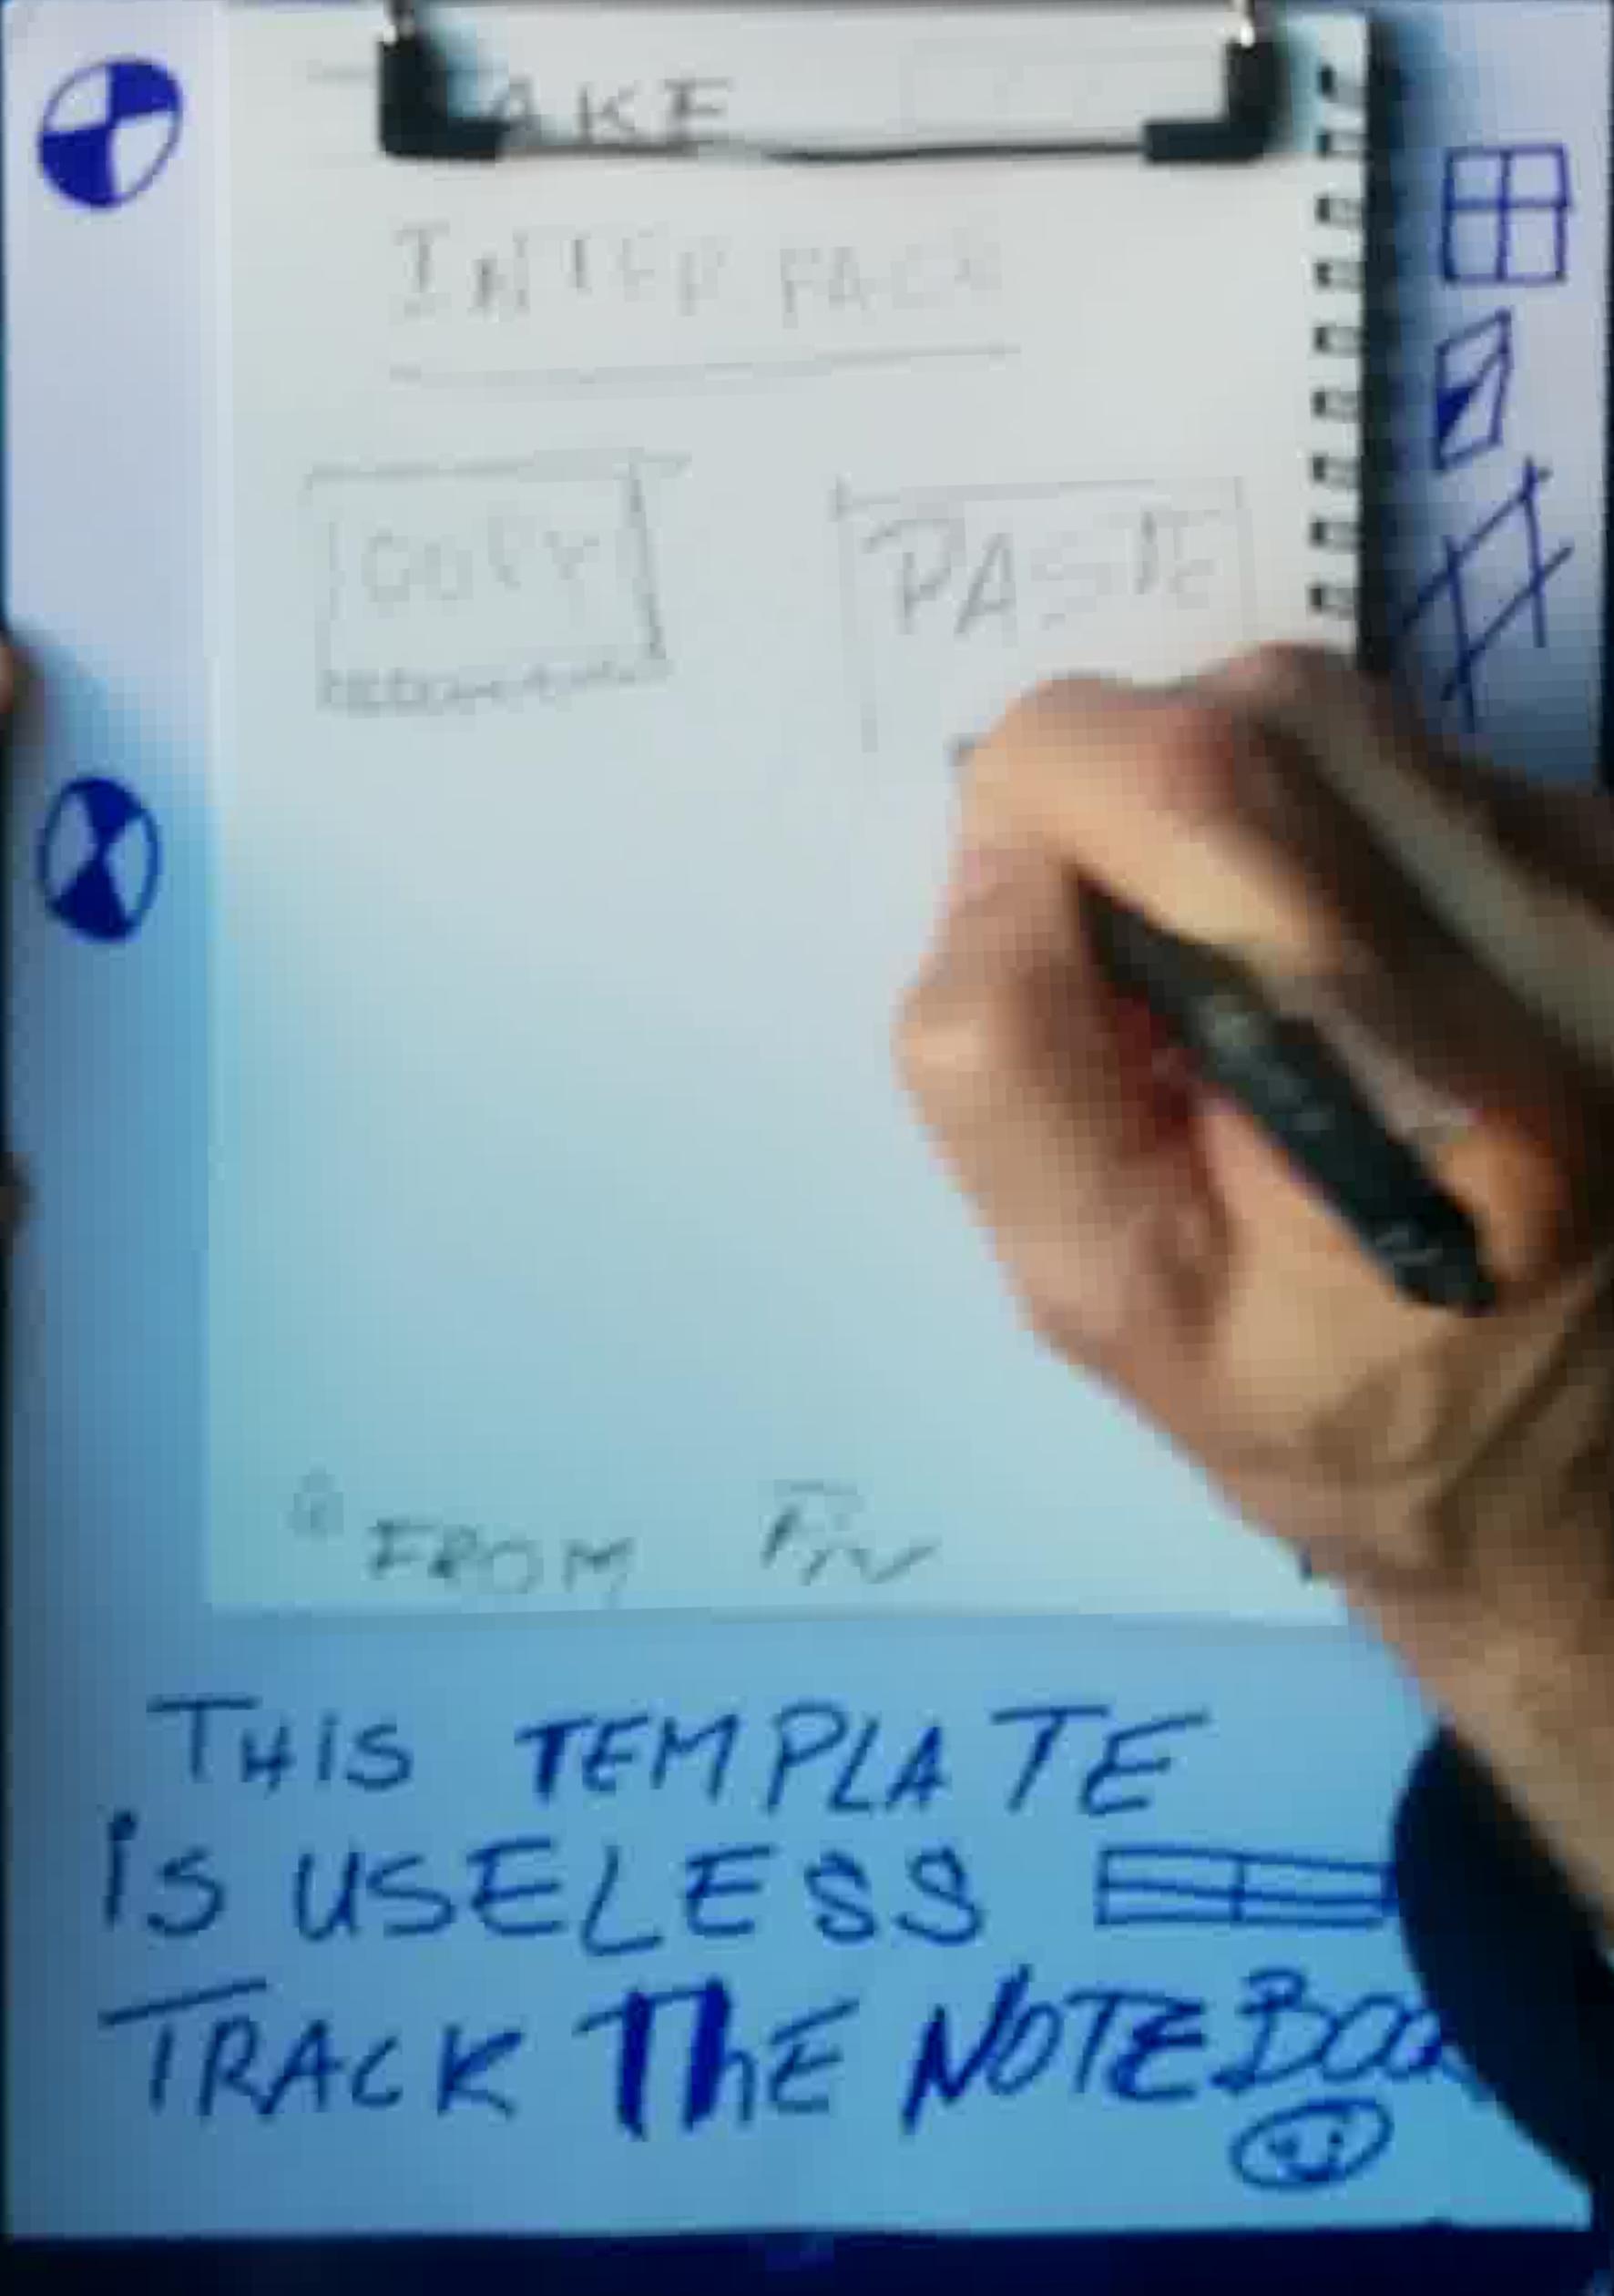 AKE
INTERFACE
COPY PASTE
FROM
THIS TEMPLATE
IS USELESS
TRACK THE NOTEBOO